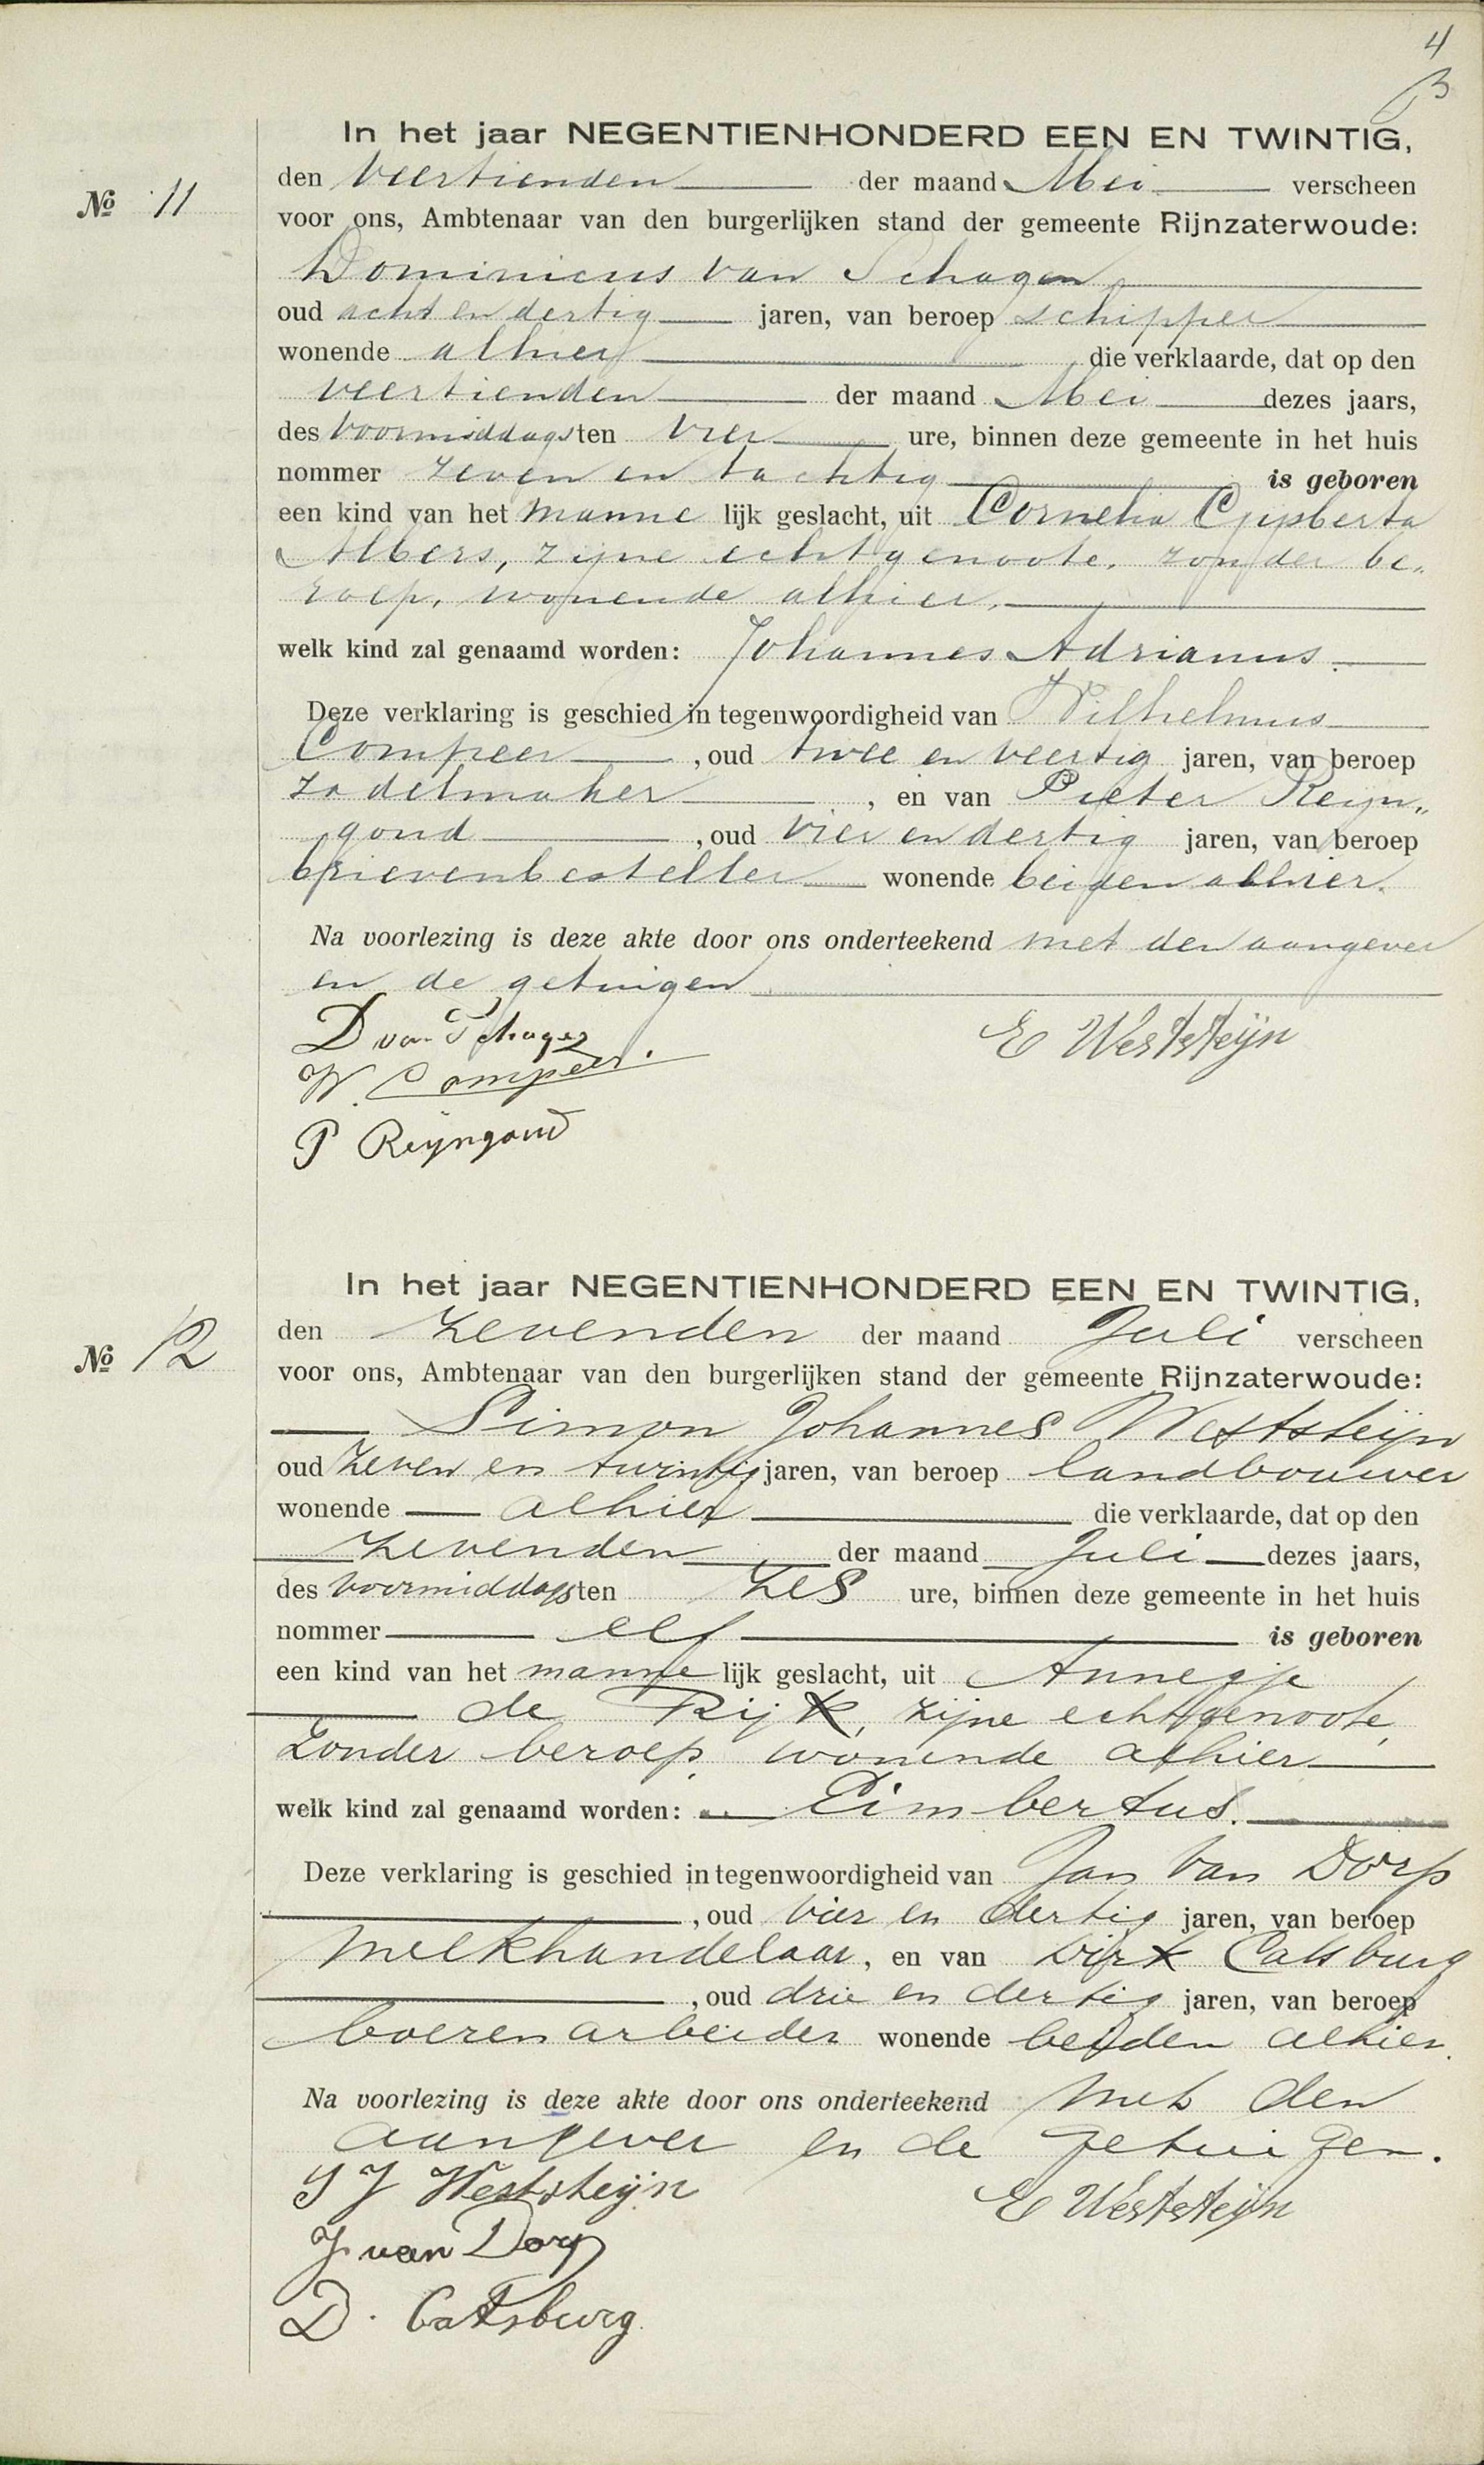 4
In het jaar NEGENTIENHONDERD EEN EN TWINTIG,
den veertienden der maand Mei verscheen
No 11
voor ons, Ambtenaar van den burgerlijken stand der gemeente Rijnzaterwoude:
Dominicus van Schagen
oud acht en dertig jaren, van beroep schipper
wonende alhier die verklaarde, dat op den
veertienden der maand Mei dezes jaars,
des voormiddags ten vier ure, binnen deze gemeente in het huis
nommer zeven en tachtig is geboren
een kind van het manne lijk geslacht, uit Cornelia Gijsberta
Albers, zijne echtgenoote, zonder be„
roep, wonende alhier.
welk kind zal genaamd worden: Johannes Adrianus.
Deze verklaring is geschied in tegenwoordigheid van Wilhelmus
Compeer, oud twee en veertig jaren, van beroep
zadelmaker, en van Pieter Reijn„
goud, oud vier en dertig jaren, van beroep
brievenbesteller wonende beiden alhier.
Na voorlezing is deze akte door ons onderteekend met den aangever
en de getuigen
D van Schagen
E Weststeijn
W. Compeer.
P Reijngoud
In het jaar NEGENTIENHONDERD EEN EN TWINTIG,
den zevenden der maand Juli verscheen
No 12
voor ons, Ambtenaar van den burgerlijken stand der gemeente Rijnzaterwoude:
Simon Johannes Weststeijn
oud zeven en twintig jaren, van beroep landbouwer
wonende alhier die verklaarde, dat op den
zevenden der maand Juli dezes jaars,
des voormiddags ten zes ure, binnen deze gemeente in het huis
nommer elf is geboren
een kind van het manne lijk geslacht, uit Annegje
de Rijk, zijne echtgenoote,
zonder beroep, wonende alhier
welk kind zal genaamd worden: Eimbertus.
Deze verklaring is geschied in tegenwoordigheid van Jan van Dorp
, oud vier en dertig jaren, van beroep
melkhandelaar, en van Dirk Catsburg
, oud drie en dertig jaren, van beroep
boerenarbeider wonende beiden alhier.
Na voorlezing is deze akte door ons onderteekend met den
aangever en de getuigen.
S J Weststeijn
E Weststeijn
J. van Dorp
D. Catsburg.